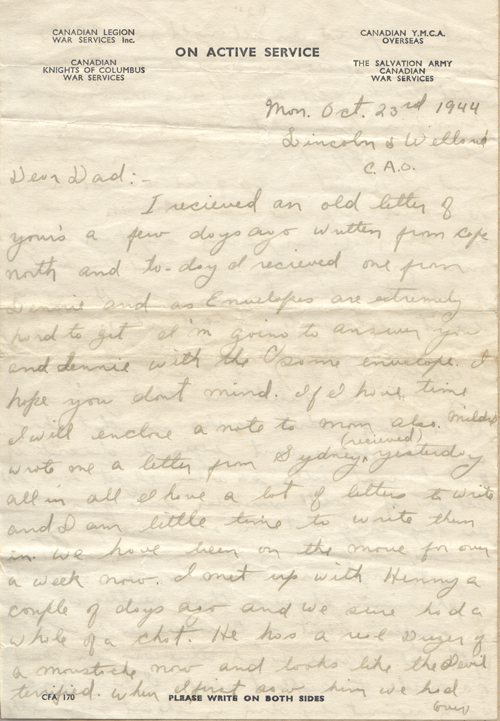 CANADIAN LEGION
WAR SERVICES Inc.
CANADIAN
KNIGHTS OF COLUMBUS
WAR SERVICES
ON ACTIVE SERVICE
CANADIAN Y.M.C.A.
OVERSEAS
THE SALVATION ARMY
CANADIAN
WAR SERVICES
Mon. Oct. 23rd 1944
Lincoln & Welland
C.A.O.
Dear Dad:-
I recieved an old letter of
yours a few days ago written from Cape
north and to-day I recieved one from
Dennie and as Envelopes are extremely
hard to get I'm going to answer you
and Dennie with the same envelope. I
hope you don't mind. If I have time
I will enclose a note to mom also. Mildred
wrote me a letter from Sydney, (recieved) yesterday
all in all I have a lot of letters to write
and I am little time to write them
in. We have been on the move for over
a week now. I met up with Henny a
couple of days ago and we sure had a
whale of a chat. He has a real of
a moustache now and looks like the Devil
terrified. When I first saw him we had
over
CFA. 170
PLEASE WRITE ON BOTH SIDES